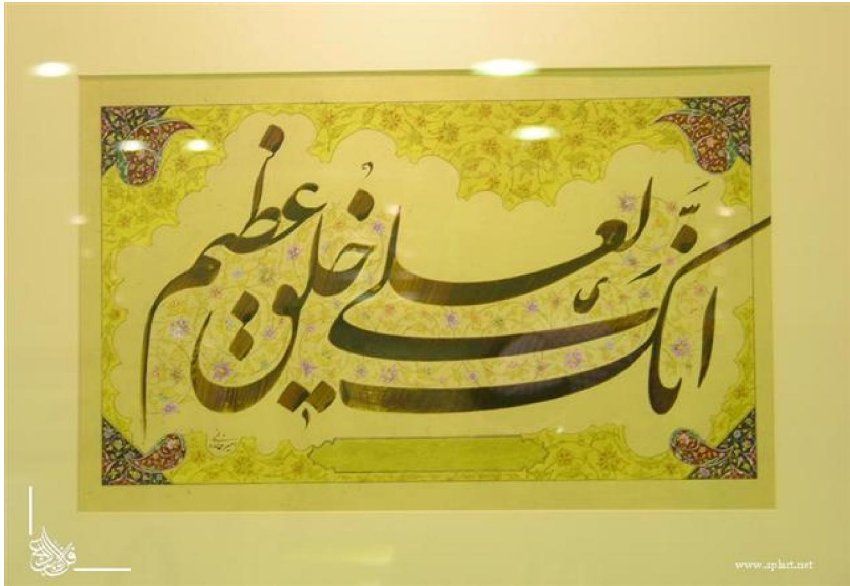 انّک لعلی خلق عظیم
www.aplart.net